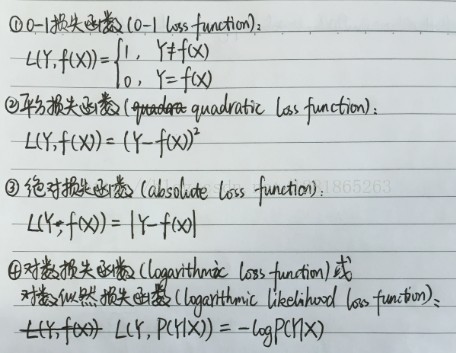 ①0-1损失函数(0-1 loss function):
L(Y,f(X))={1, Y≠f(X)
0, Y=f(X)
②平方损失函数(quadra quadratic loss function):
L(Y,f(X))=(Y-f(X))²
③绝对损失函数(absolute loss function):
L(Y,f(X))=|Y-f(X)|
④对数损失函数(logarithmic loss function)或
对数似然损失函数(logarithmic likelihood loss function):
L(Y,f(X)) L(Y,P(Y|X))=-logP(Y|X)